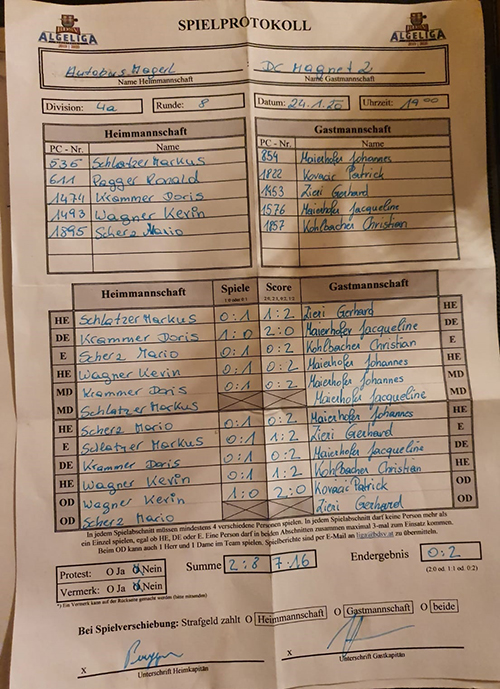 ALGELIGA SPIELPROTOKOLL ALGELIGA
Autobus Mogerl Dc Magnet 2
Name Heimmannschaft Name Gastmannschaft
Division: 4a Runde: 8 Datum: 24.1.20 Uhrzeit: 19 00
Heimmannschaft Gastmannschaft
PC - Nr. Name PC - Nr. Name
535 Schlatzer Markus 854 Maierhofer Johannes
611 Pagger Ronald 1822 Kovacic Patrick
1474 Krammer Doris 1453 Zieri Gerhard
1493 Wagner Kevin 1576 Maierhofer Jacqueline
1895 Scherz Mario 1857 Kohlbacher Christian
Heimmannschaft Spiele Score Gastmannschaft
HE Schlatzer Markus 0:1 1:2 Zieri Gerhard HE
DE Krammer Doris 1:0 2:0 Maierhofer Jacqueline DE
E Scherz Mario 0:1 0:2 Kohlbacher Christian E
HE Wagner Kevin 0:1 0:2 Maierhofer Johannes HE
MD Krammer Doris 0:1 0:2 Maierhofer Johannes MD
MD Schlatzer Markus Maierhofer Jacqueline MD
HE Scherz Mario 0:1 0:2 Maierhofer Johannes HE
E Schlatzer Markus 0:1 1:2 Zieri Gerhard E
DE Krammer Doris 0:1 0:2 Maierhofer Jacqueline DE
HE Wagner Kevin 0:1 1:2 Kohlbacher Christian HE
OD Wagner Kevin 1:0 2:0 Kovacic Patrick OD
OD Scherz Mario Zieri Gerhard OD
In jedem Spielabschnitt müssen mindestens 4 verschiedene Personen spielen. In jedem Spielabschnitt darf keine Person mehr als
ein Einzel spielen, egal ob HE, DE oder E. Eine Person darf in beiden Abschnitten zusammen maximal 3-mal zum Einsatz kommen.
Beim OD kann auch 1 Herr und 1 Dame im Team spielen. Spielberichte sind per E-Mail an zu übermitteln.
Protest: O Ja O Nein Summe 2:8 7:16 Endergebnis 0:2
Vermerk: O Ja O Nein (2:0 od. 1:1 od. 0:2)
*) Ein Vermerk kann auf der Rückseite gemacht werden (bitte
Bei Spielverschiebung: Strafgeld zahlt O Heimmannschaft O Gastmannschaft O beide
X X
Unterschrift Heimkapitän Unterschrift Gastkapitän